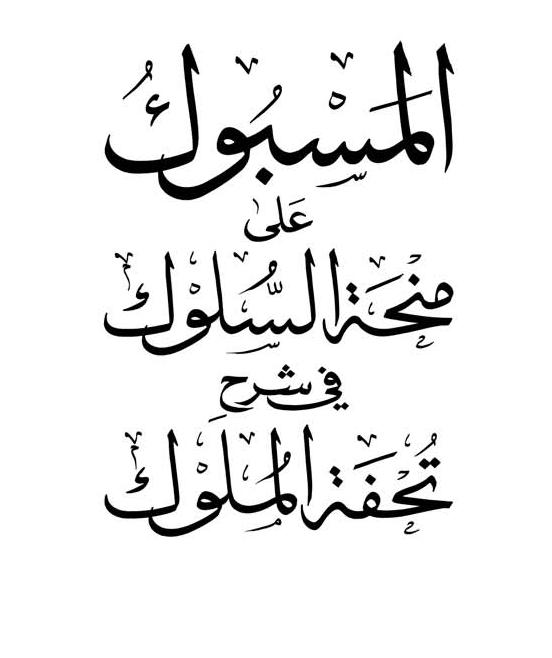 المَسْبُوكُ
عَلىٰ
مِنْحَة السُّلوْك
في شرح
تُحْفَة المُلوْك